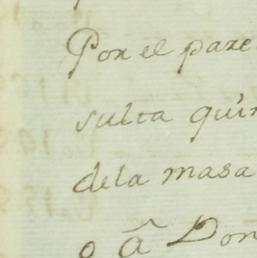 Por el pare
sulta quin
dela masa
o â Don